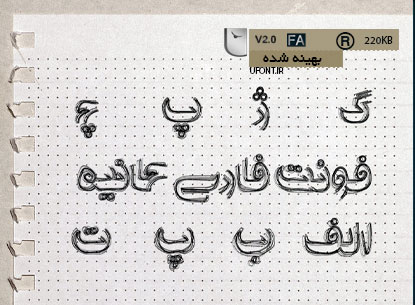 V2.0 FA ® 220KB
بهینه شده
UFONT.IR
گ ژ پ چ
فونت فارسی
الف ب پ ت